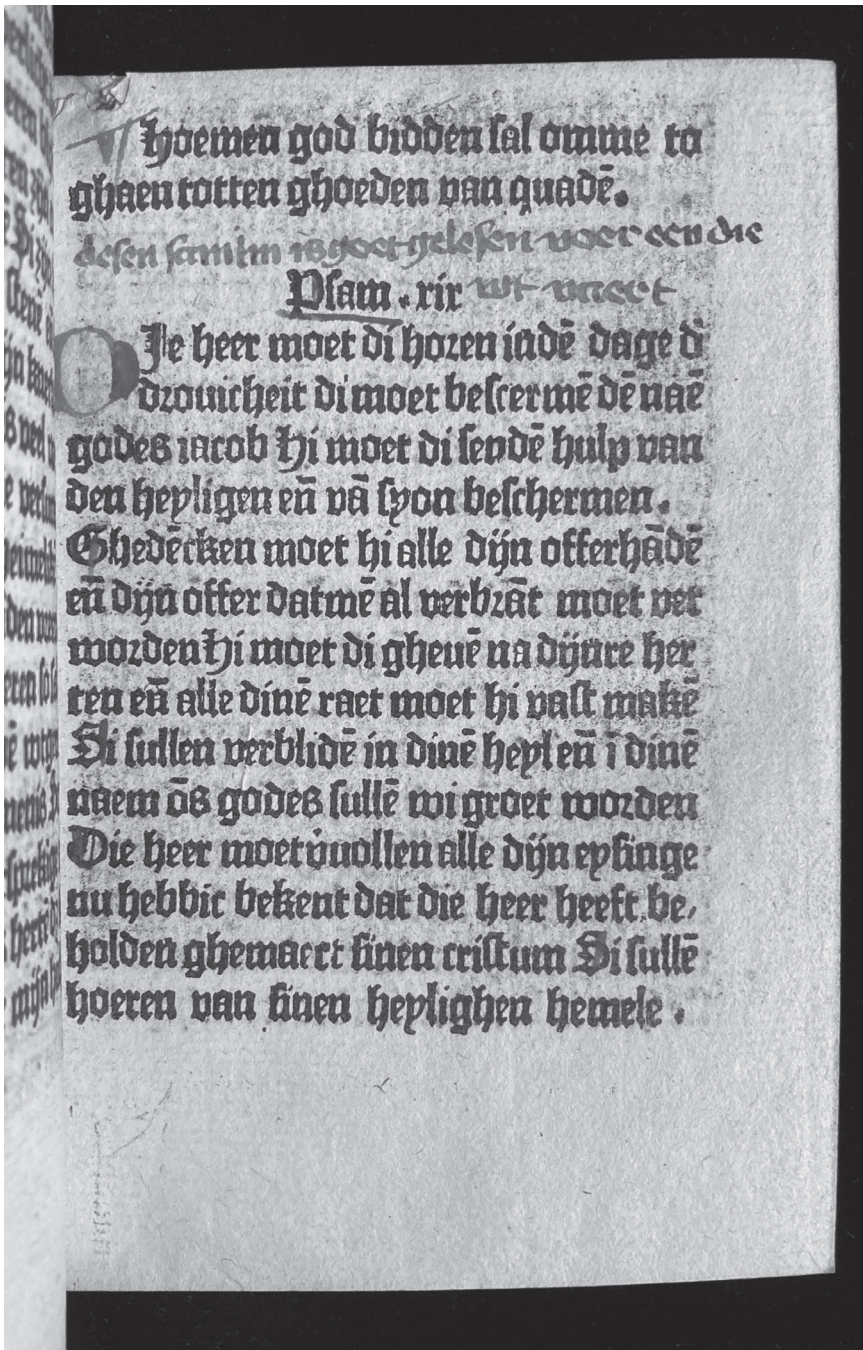 ¶ Hoemen god bidden sal omme to
ghaen totten ghoeden van quadē.
desen saulm is goet gelesen voer een die
Psam. xix wt vaert
DIe heer moet di horen indē dage d'
drouicheit di moet bescermē dē naē
godes iacob Hi moet di sendē hulp van
den heyligen en̄ vā syon beschermen.
Ghedēcken moet hi alle dijn offerhādē
en̄ dijn offer datmē al verbrāt moet vet
worden Hi moet di gheuē na dijnre her
ten en̄ alle dinē raet moet hi vast makē
Si sullen verblidē in dinē heyl en̄ ī dinē
naem ōs godes sullē wi groet worden
Die heer moet v̄uollen alle dijn eysinge
nu hebbic bekent dat die heer heeft be,
holden ghemaect sinen cristum Si sullē
hoeren van sinen heylighen hemele.